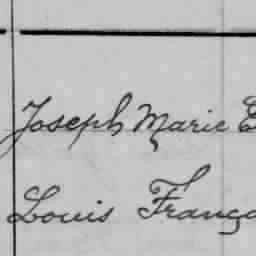 Joseph Marie E
Louis Franço